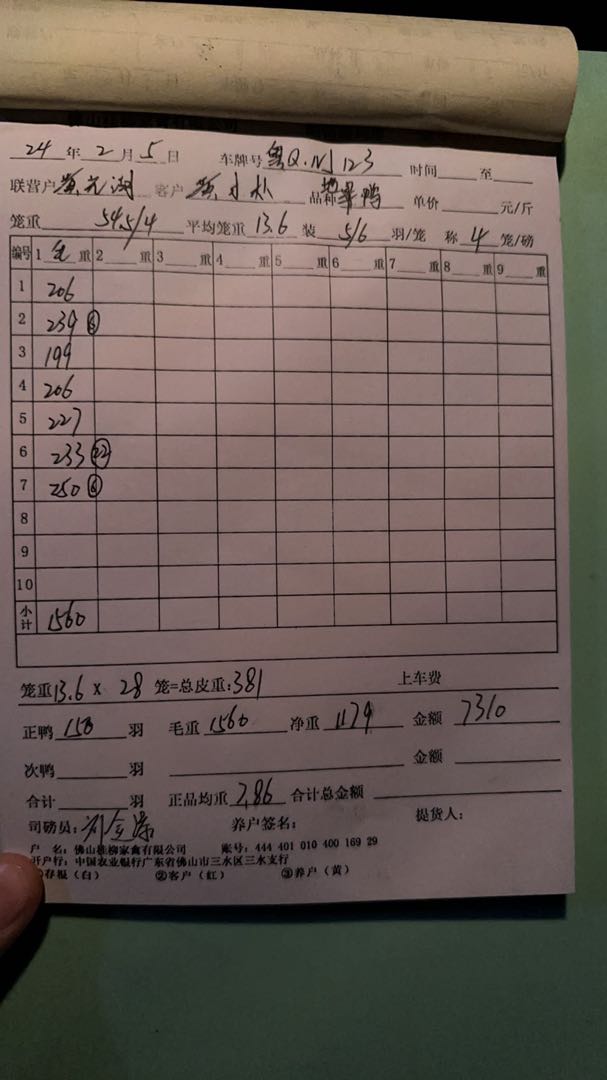 24 年 2 月 5 日 车牌号 粤Q·NJ123 时间 至
联营户 黄元湖 客户 黄才权 品种 鸭 单价 元/斤
笼重 54.5/4 平均笼重 13.6 装 5/6 羽/笼 称 4 笼/磅
编号 1 毛 重 2 重 3 重 4 重 5 重 6 重 7 重 8 重 9 重
1 206
2 239 ⑥
3 199
4 206
5 227
6 233 ㉒
7 250 ⑥
8
9
10
小计 1560
笼重 13.6 x 28 笼=总皮重:381 上车费
正鸭 150 羽 毛重 1560 净重 1179 金额 7310
次鸭 羽 金额
合计 羽 正品均重 7.86 合计总金额
司磅员: 养户签名: 提货人:
户 名: 佛山桂柳家禽有限公司 账号: 444 401 010 400 169 29
开户行: 中国农业银行广东省佛山市三水区三水支行
①存根(白) ②客户(红) ③养户(黄)